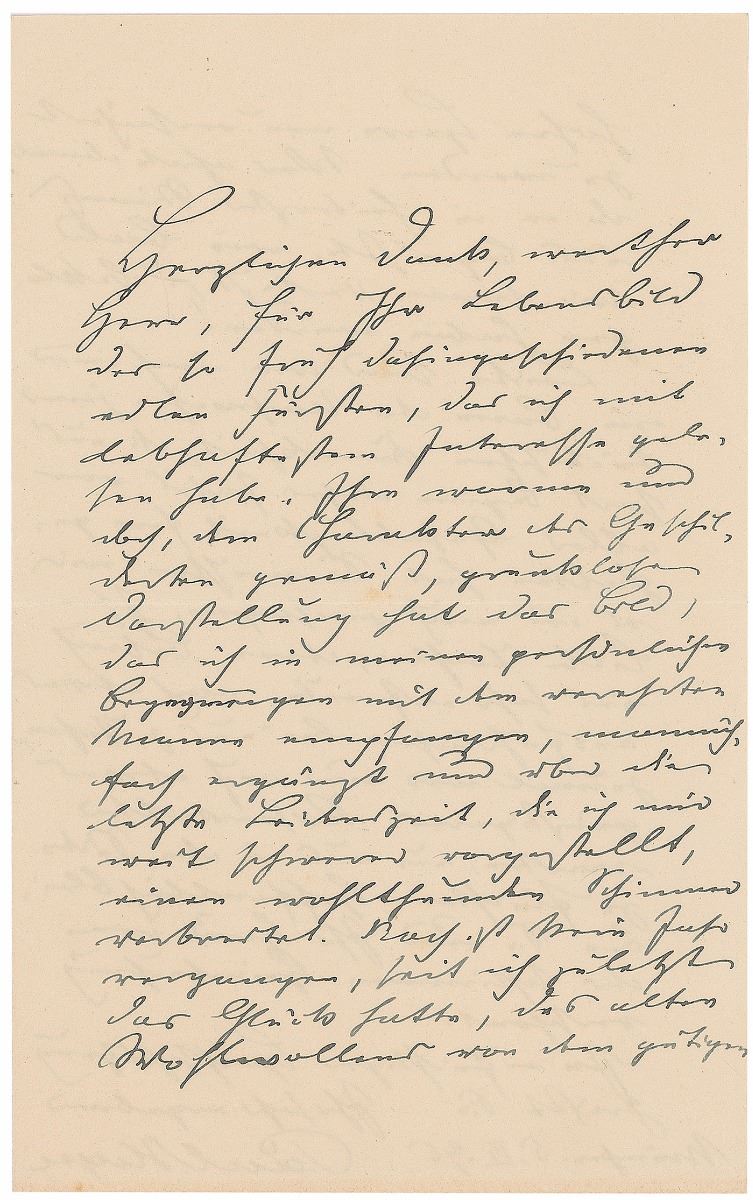 Herzlichen Dank, werther
Herr, für Ihr Lebensbild
des so früh dahingeschiedenen
edlen Fürsten, das ich mit
lebhaftestem Interesse gele-
sen habe. Ihre warme und
doch, dem Charakter des Geschil-
derten gemäß, prunklose
Darstellung hat das Bild,
das ich in meinen persönlichen
Begegnungen mit dem verehrten
Manne empfangen, mannich-
fach ergänzt und über die
letzte Leidenszeit, die ich mir
weit schwerer vorgestellt,
einen wohlthuenden Schimmer
verbreitet. Noch ist kein Jahr
vergangen, seit ich zuletzt
das Glück hatte, des alten
Wohlwollens von dem gütigen